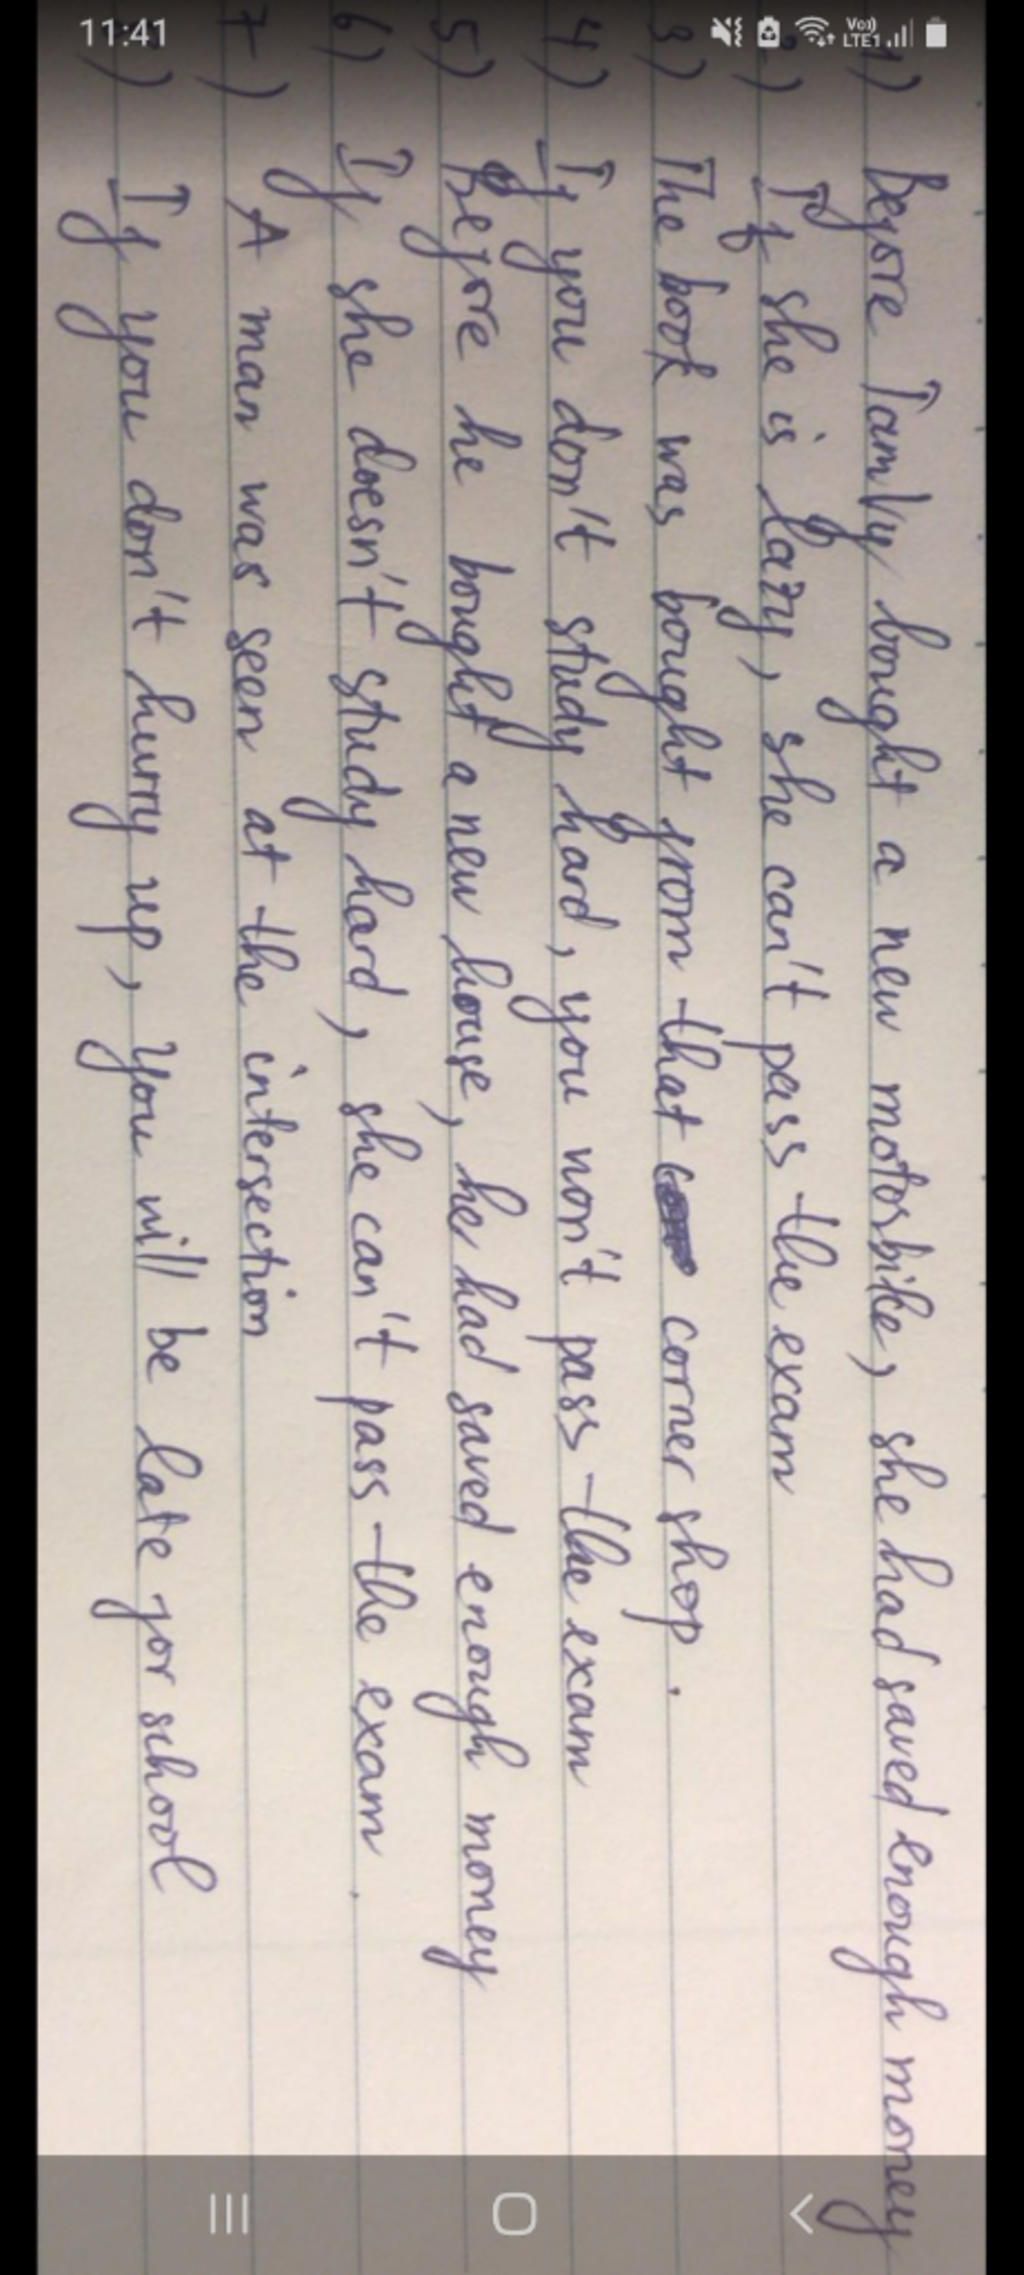 11:41
Vo))
LTE1
1) Before Tam Vy bought a new motorbike, she had saved enough money
2) If she is lazy, she can't pass the exam
3) The book was bought from that corner shop.
4) If you don't study hard, you won't pass the exam
5) Before he bought a new house, he had saved enough money
6) If she doesn't study hard, she can't pass the exam.
7) A man was seen at the intersection
) If you don't hurry up, you will be late for school